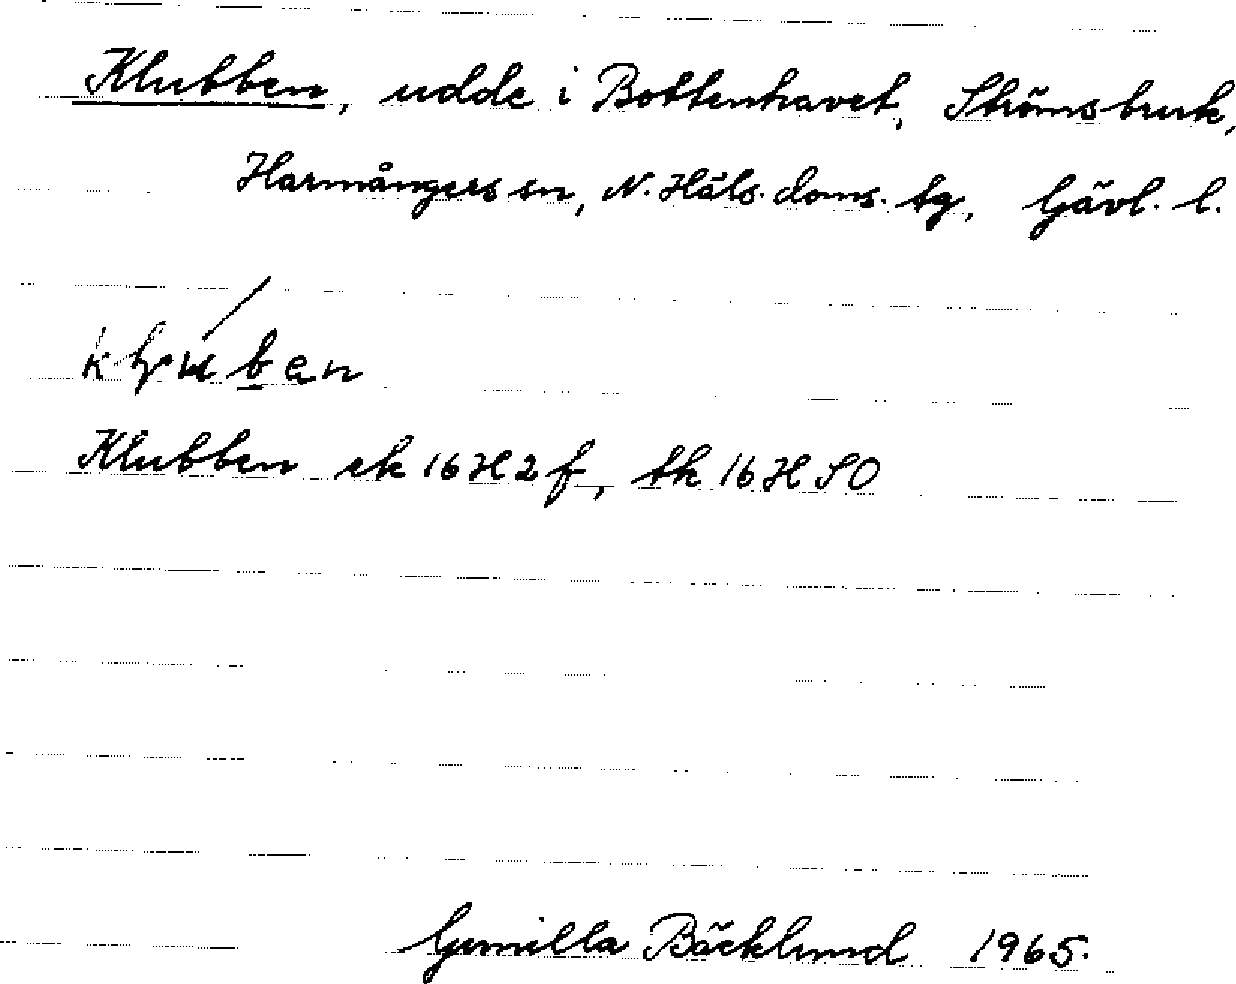 Klubben, udde i Bottenhavet, Strömsbruk,
Harmångers sn, N. Häls. doms. tg, Gävl. l.
Klubben ek 16H2f, tk 16H SO
Gunilla Bäcklund 1965.